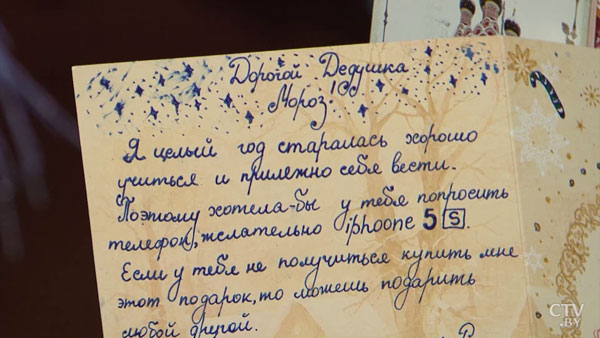 Дорогой Дедушка
Мороз!
Я целый год старалась хорошо
учиться и прилежно себя вести.
Поэтому хотела-бы у тебя попросить
телефон, желательно iphoone 5 S.
Если у тебя не получиться купить мне
этот подарок, то можешь подарить
любой другой.
CTV
.BY